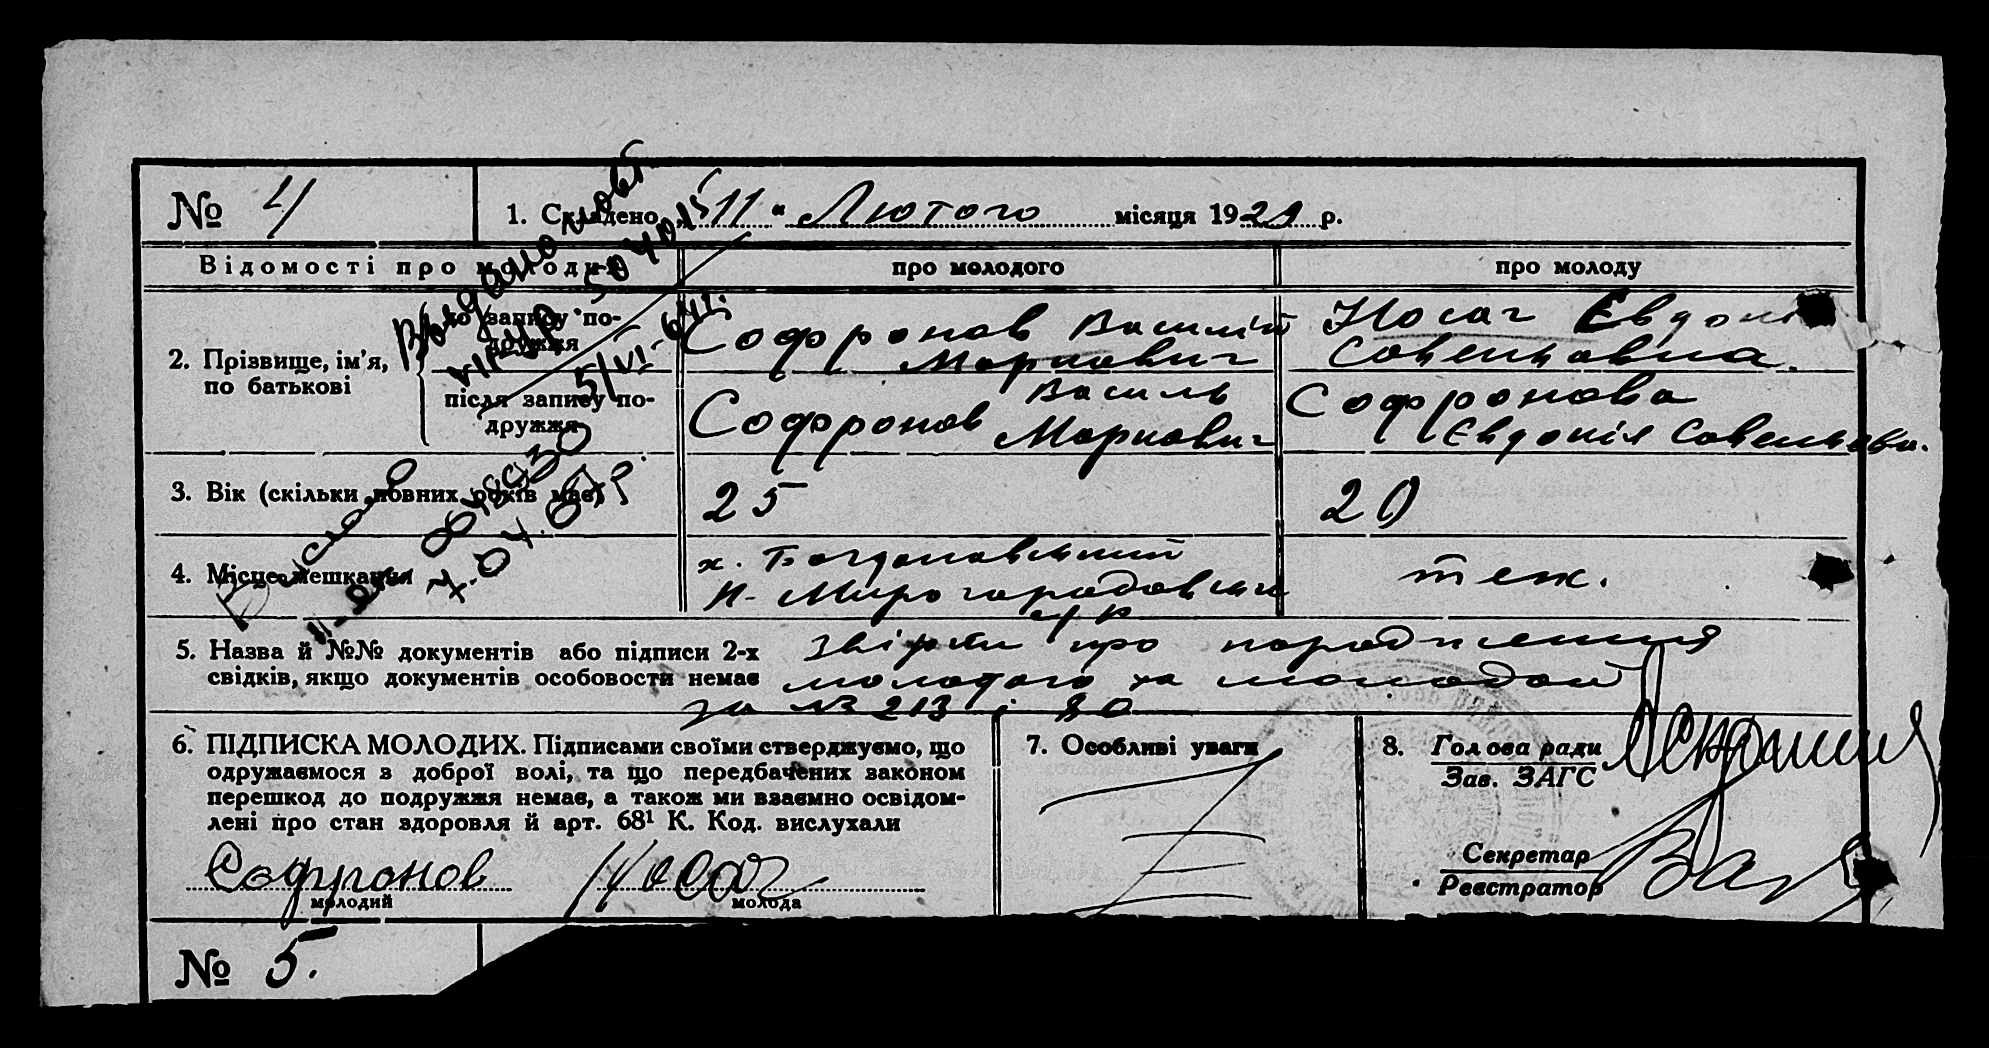 № 4
1. Складено „11“ Лютого місяця 1929 р.
Відомості про молодих
про молодого
про молоду
2. Прізвище, ім'я, по батькові
до запису по-
дружжя
Софронов Василій
Маркович
Носаг Євдок
Савельовна.
після запису по-
дружжя
Софронов Василь
Маркович
Софронова
Євдокія Савельовн.
3. Вік (скільки повних років має)
25
20
4. Місце мешкання
х. Богдановський
Н-Миргородовська
с/р
теж.
5. Назва й №№ документів або підписи 2-х
свідків, якщо документів особовости немає
про народження
молодого та молодой
за № 213 і 80
6. ПІДПИСКА МОЛОДИХ. Підписами своїми стверджуємо, що
одружаємося з доброї волі, та що передбачених законом
перешкод до подружжя немає, а також ми взаємно освідом-
лені про стан здоровля й арт. 68¹ К. Код. вислухали
Софронов
молодий
Носаг
молода
7. Особливі уваги
8. Голова ради
Зав. ЗАГС
Секретар
Реєстратор
Выдано
504015
5/VI-64г.
7.04.
№ 5.